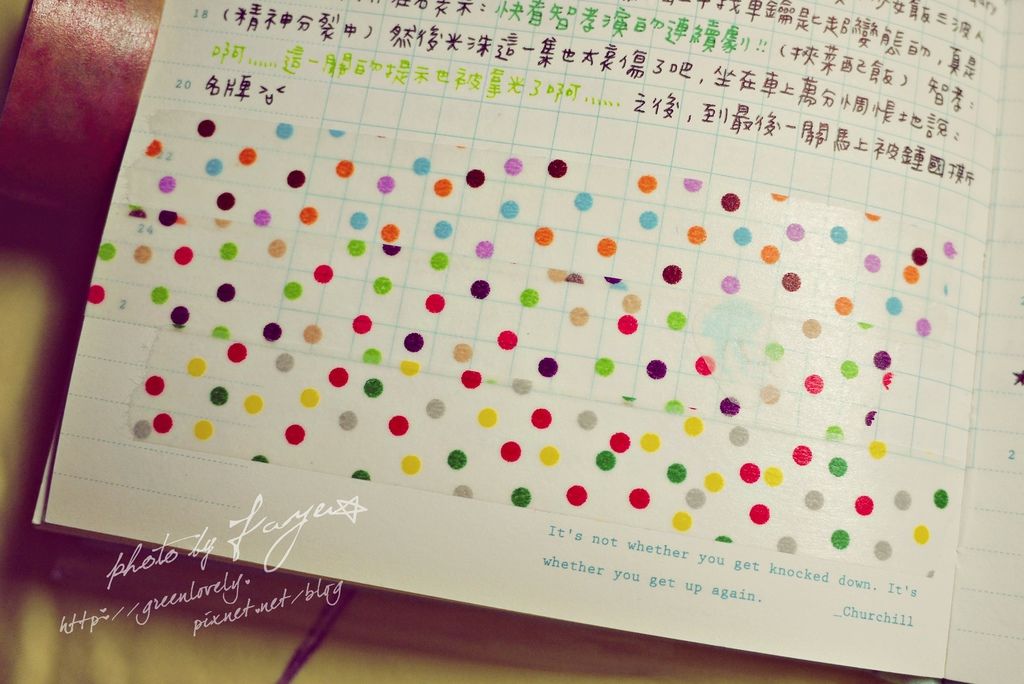 18
(精神分裂中) 然後光洙這一集也太哀傷了吧, 坐在車上萬分惆悵地說:
啊......這一關的提示也被拿光了啊...... 之後, 到最後一關馬上被鍾國撕
20 名牌
快看智孝演的連續劇!! (挾菜配飯) 智孝:
22
24
2
2
It's not whether you get knocked down. It's
whether you get up again.
_Churchill
photo by Faye
http://greenlovely.
pixnet.net/blog